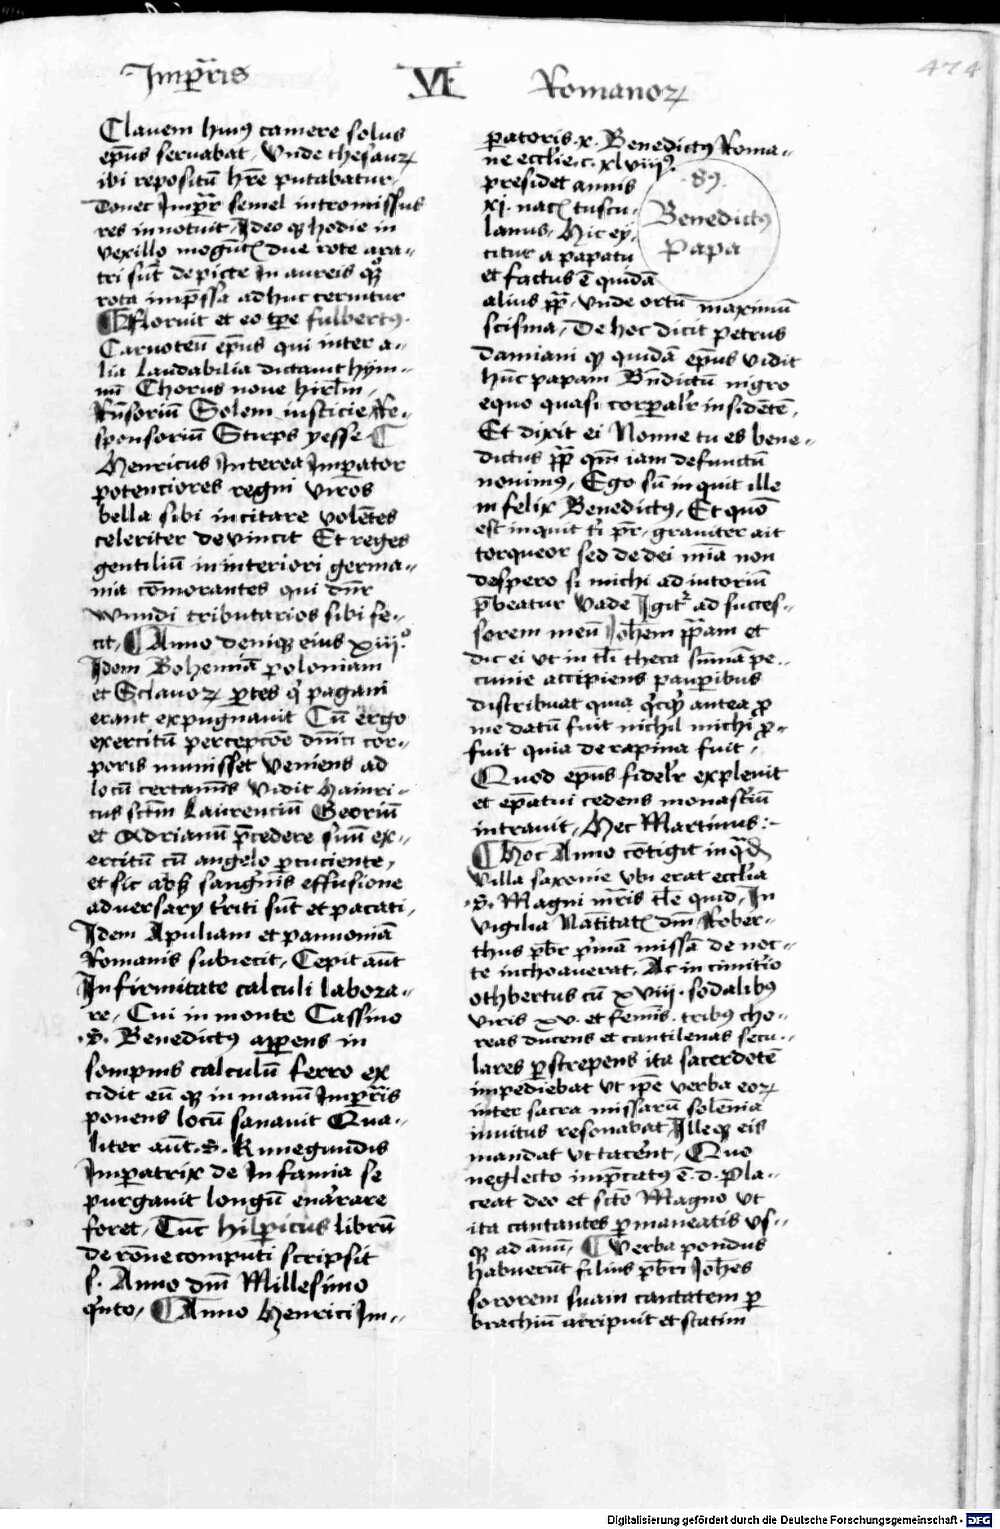 Imperatris VI Romanoꝝ
474
Clauem huiꝰ camere solus
ep̄us seruabat, Vnde thesauꝝ
ibi repositū hr̄e putabatur,
Donec Imp̄r semel intromissus
res innotuit, Ideo qꝫ hodie in
vexillo mogūt due rote ara=
tri sūt depicte In aureis
rota imp̄ssa adhuc cernitur
Floruit et eo tp̄e fulbertꝰ
Carnoten̄ ep̄us qui inter a=
lia laudabilia dictauit hym=
nū Chorus noue hirl̄m,
Rn̄soriū Solem iusticie Re=
sponsoriū Stirps yesse
Henricus Interea Imperator
potenciores regni viros
bella sibi incitare volētes
celeriter deuincit Et reges
gentiliū in interiori germa=
nia cōmorantes qui dn̄r
wundi tributarios sibi fe=
cit, Anno deniqꝫ eius xiiiº
Idem Bohemiā poloniam
et Sclauoꝝ ꝑtes q̄ pagani
erant expugnauit Cū ergo
exercitū percepcōe dn̄ici cor=
poris munisset veniens ad
locū certamīs vidit Hainri=
cus sctm̄ Laurenciū Georiū
et Adrianū p̄cedere suū ex=
ercitū cū angelo ꝑcuciente,
et sic absꝫ sangnīs effusione
aduersary triti sūt et pacati,
Idem Apuliam et pannoniā
Romanis subiecit, Cepit aūt
Infirmitate calculi labora=
re, Cui in monte Cassino
.S. Benedictꝰ apꝑens in
sompnis calculū ferro ex
cidit eū qꝫ in manū Imꝑris
ponens locū sanauit Qua=
liter aūt .S. Kunegundis
Imperatrix de Infamia se
purgauit longū enarrare
foret, Tūc hilpericus librū
de rōne computi scripsit
s. Anno dn̄i Millesimo
qⁱnto, Anno Henrici Im=
peratoris .x. Benedictꝰ Roma=
ne eccl̄ie .c. xlviiiiꝰ
presidet annis
xi. nac̄ tuscu=
lanus, Hic ey=
citur a papatu
et factus ē quidā
alius p̄p̄, Vnde ortū maximū
scisma, De hoc dicit petrus
damiani qꝫ quidā ep̄us vidit
hūc papam Bn̄dictū nigro
equo quasi corꝑalr̄ insidētē,
Et dixit ei Nonne tu es bene=
dictus p̄p̄ qm̄ iam defunctū
nouimꝰ, Ego sū inquit ille
infelix Benedictꝰ, Et quō
est inquit ti p̄r, grauiter ait
torqueor sed de dei mīa non
despero si michi adiutoriū
p̄beatur Vade Igitr̄ ad succes=
sorem meū Ioh̄em p̄p̄am et
dic ei vt in tl̄i theca sūmā pe=
cunie accipiens pauꝑibus
distribuat quia qcqd antea ꝓ
me datū fuit nichil michi ꝓ=
fuit quia de rapina fuit,
Quod ep̄us fidelr̄ expleuit
et ep̄atui cedens monastiū
intrauit, Hec Martinus:
Hoc Anno cōtigit in qd̄
Villa saxonie vbi erat eccl̄ia
.S. Magni mr̄is tl̄e quid, In
vigilia Natītatꝭ dn̄i Rober=
thus pb̄r pmā missā de noc=
te inchoauerat, Ac in cimitio
othbertus cū xviii. sodalibꝰ
viris xv. et femīs tribus cho=
reas ducens et cantilenas secu=
lares ꝑstrepens ita sacerdotē
impediebat vt ip̄e verba eoꝝ
inter sacra missarū solēnia
inuitus resonabat, Ille qꝫ eis
mandat vt tacerēt, Quo
neglecto imp̄catꝰ ē .d. pla=
ceat deo et scto Magno vt
ita cantantes ꝑmaneatis vs=
qꝫ ad anū, Verba pondus
habuerūt filius pb̄ri Ioh̄es
sororem suam cantatem ꝑ
brachiū arripuit et statim
.89.
Benedictꝰ
Papa
Digitalisierung gefördert durch die Deutsche Forschungsgemeinschaft - DFG